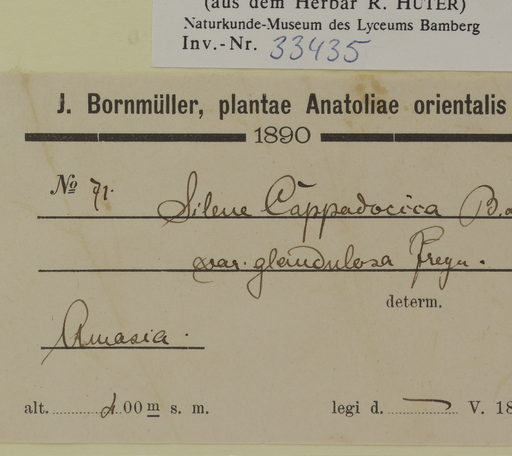 (aus dem Herbar R. HUTER)
Naturkunde-Museum des Lyceums Bamberg
Inv.-Nr. 33435
J. Bornmüller, plantae Anatoliae orientalis
1890
No 71.
Silene Cappadocica B.
var. glandulosa Freyn.
determ.
Amasia.
alt. 400 m s. m.
legi d. V. 18